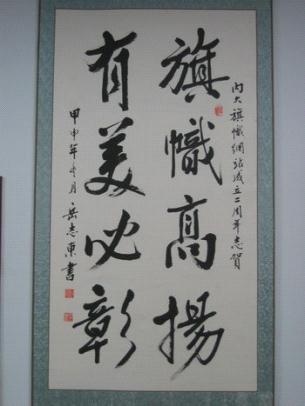 内大旗幟網站成立二周年志賀
旗幟高揚
有美必彰
甲申年十月 岳志東書